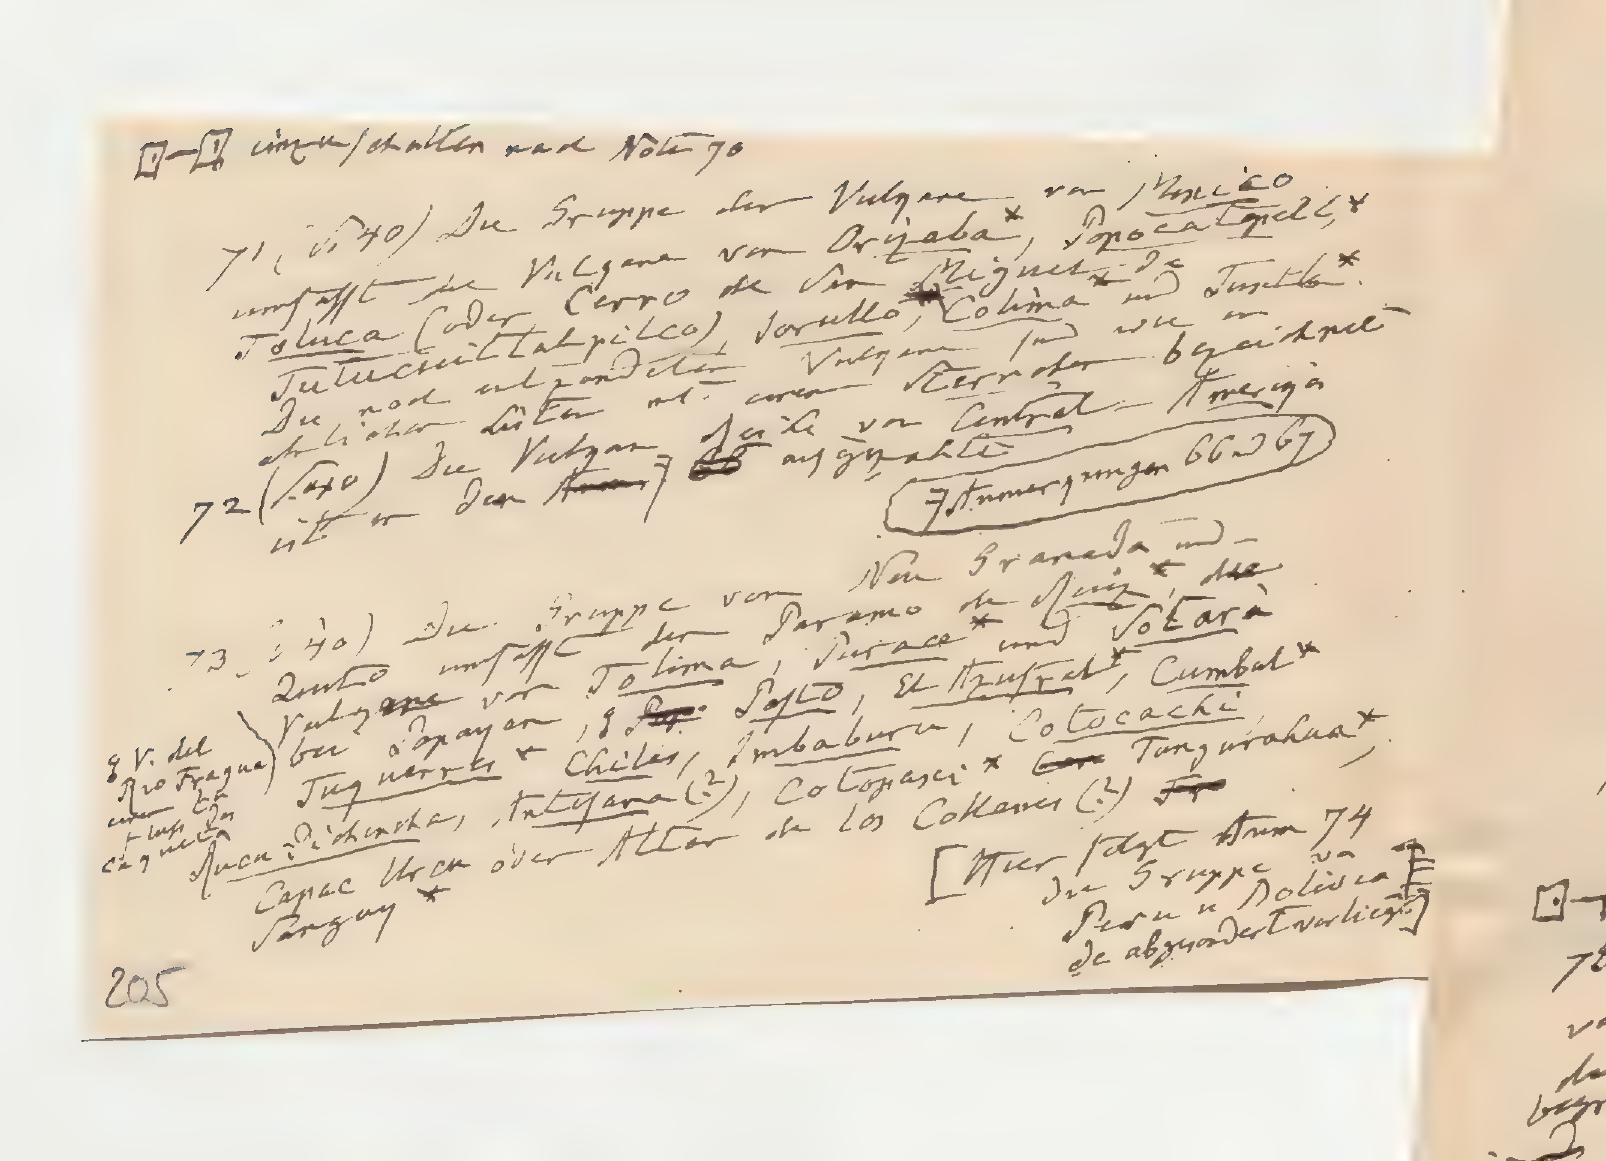 einzuschalten nach Note 70
71 (S. 40) Die Gruppe der Vulkane von Mexico
umfasst die Vulkane von Orizaba*, Popocatepetl,*
Toluca (oder Cerro de San Miguel de
Tutucuitlatpilco), Jorullo, Colima* und Tuxtla*.
Die noch entzündeten Vulkane sind wie in
ähnlichen Listen mit einem Sternchen bezeichnet
72 (S. 40) Die Vulkan Reihe von Central-Amerika
ist in den Anmerkungen 66 und 67 aufgezählt
73 (S. 40) Die Gruppe von Neu Granada und
Quito umfasst den Paramo de Ruiz*, die
Vulkane von Tolima, Puracé* und Sotará
bei Popayan, Pasto, El Azufral*, Cumbal*
Tuquerres* Chiles, Imbaburu, Cotocachi,
Rucu Pichincha, Antisana(?), Cotopaxi* Tungurahua*,
Capac Urcu oder Altar de los Collanes(?)
Sangay*
V. del
Rio Fragua
Caqueta
[Hier folgt Anm 74
die Gruppe von
Peru u Bolivia
die abgesondert vorliegt]
205